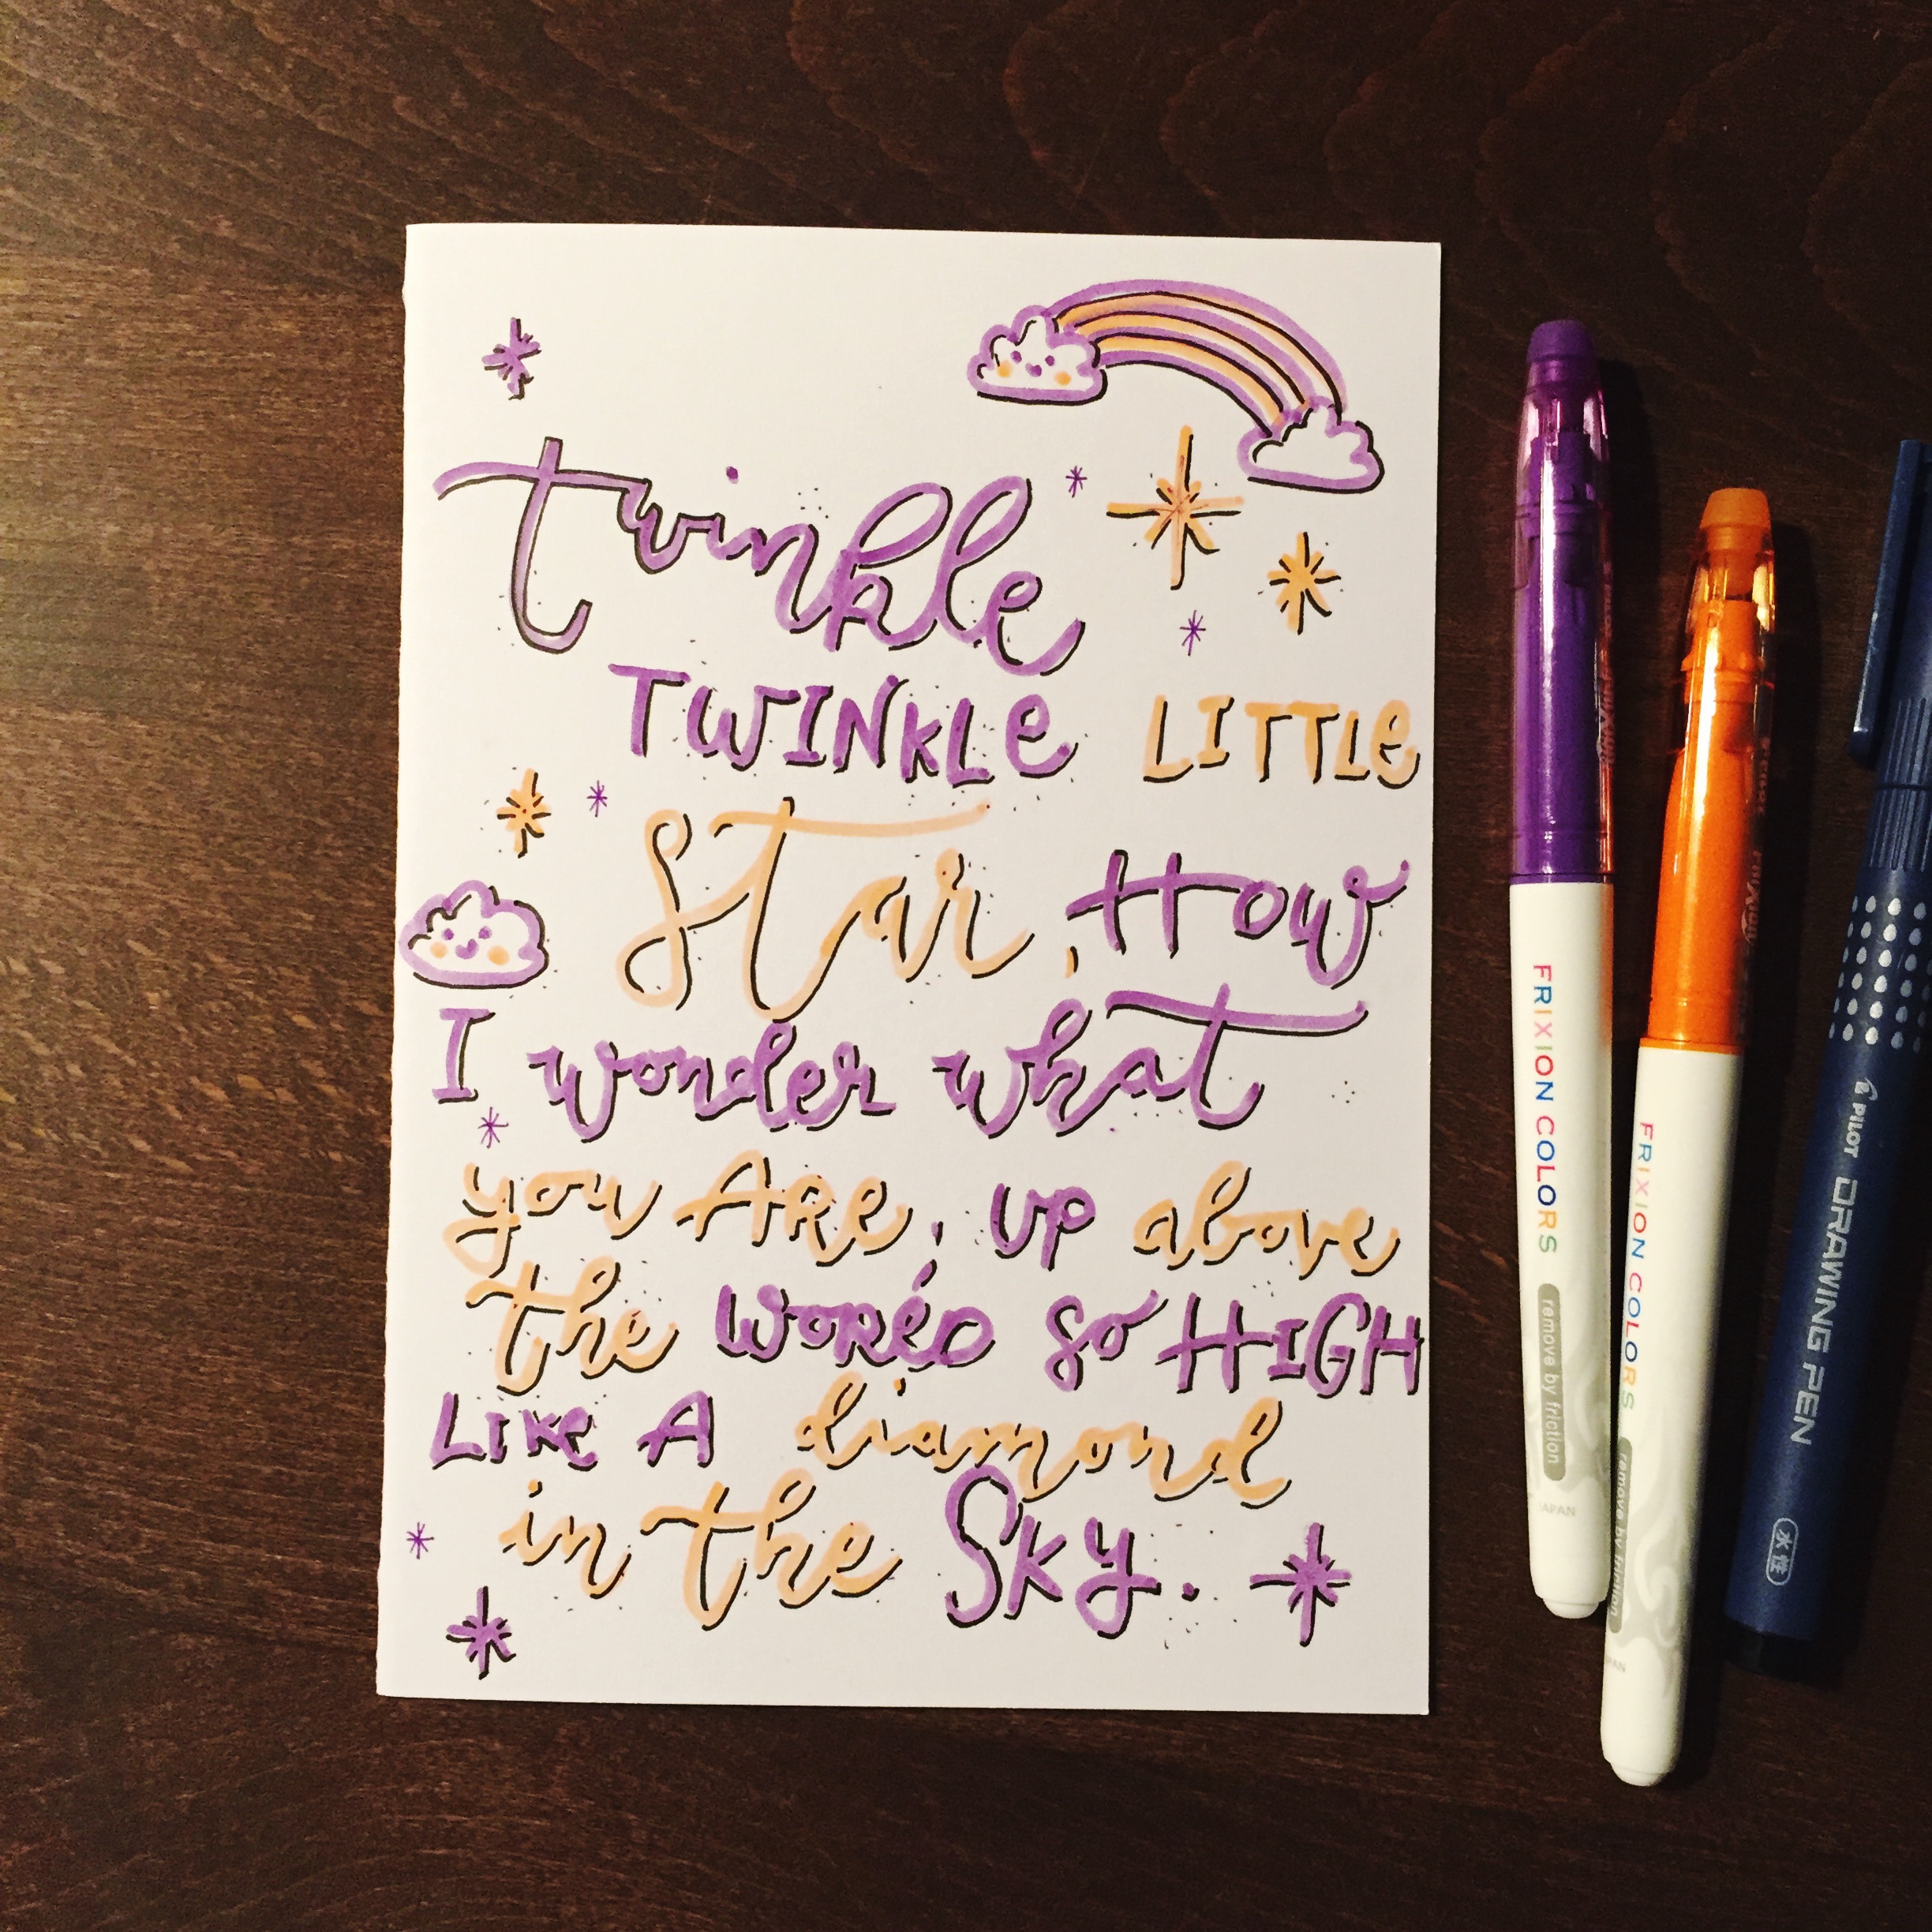 twinkle
TWINKLe LITTLe
star, How
I wonder what
you ARe, UP above
the WORLD so HIGH
LIKe A diamond
in the Sky.
FRIXION COLORS remove by friction
JAPAN
FRIXION COLORS remove by friction
PILOT DRAWING PEN 水性